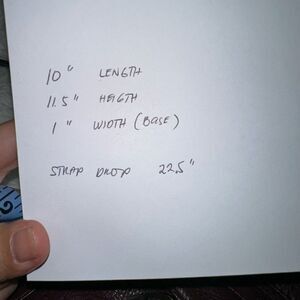 10" LENGTH
11.5" HEIGTH
1" WIDTH (BASE)
STRAP DROP 22.5"